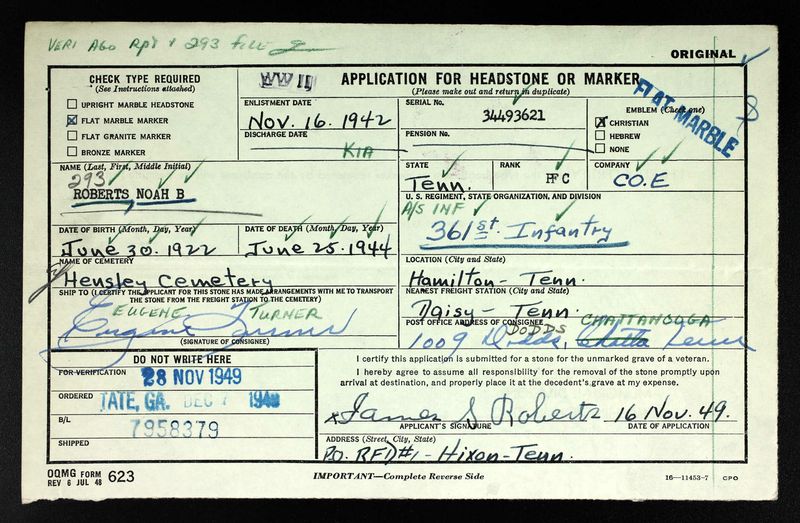 VERI AGO Rpt & 293 file
ORIGINAL
CHECK TYPE REQUIRED
(See Instructions attached)
UPRIGHT MARBLE HEADSTONE
FLAT MARBLE MARKER
FLAT GRANITE MARKER
BRONZE MARKER
WW II
APPLICATION FOR HEADSTONE OR MARKER
(Please make out and return in duplicate)
ENLISTMENT DATE
Nov. 16. 1942
DISCHARGE DATE
KIA
SERIAL No.
34493621
PENSION No.
EMBLEM (Check one)
CHRISTIAN
HEBREW
NONE
FLAT MARBLE
NAME (Last, First, Middle Initial)
293
ROBERTS NOAH B
STATE
Tenn.
RANK
PFC
COMPANY
CO. E
U. S. REGIMENT, STATE ORGANIZATION, AND DIVISION
A/S INF
361st. Infantry
DATE OF BIRTH (Month, Day, Year)
June 30. 1922
DATE OF DEATH (Month, Day, Year)
June 25. 1944
NAME OF CEMETERY
Hensley Cemetery
LOCATION (City and State)
Hamilton - Tenn.
SHIP TO (I CERTIFY THE APPLICANT FOR THIS STONE HAS MADE ARRANGEMENTS WITH ME TO TRANSPORT
THE STONE FROM THE FREIGHT STATION TO THE CEMETERY)
EUGENE TURNER
Eugene Turner
(SIGNATURE OF CONSIGNEE)
NEAREST FREIGHT STATION (City and State)
Daisy - Tenn.
POST OFFICE ADDRESS OF CONSIGNEE
DODDS CHATTANOOGA
1009 Dodds, Chatta Tenn
DO NOT WRITE HERE
FOR VERIFICATION
28 NOV 1949
ORDERED
TATE, GA. DEC 7 1949
B/L
7958379
SHIPPED
I certify this application is submitted for a stone for the unmarked grave of a veteran.
I hereby agree to assume all responsibility for the removal of the stone promptly upon
arrival at destination, and properly place it at the decedent's grave at my expense.
x James S Roberts 16 Nov. 49.
APPLICANT'S SIGNATURE
DATE OF APPLICATION
ADDRESS (Street, City, State)
P.O. RFD #1 - Hixon - Tenn.
OQMG FORM 623
REV 6 JUL 48
IMPORTANT—Complete Reverse Side
16—11453-7 GPO